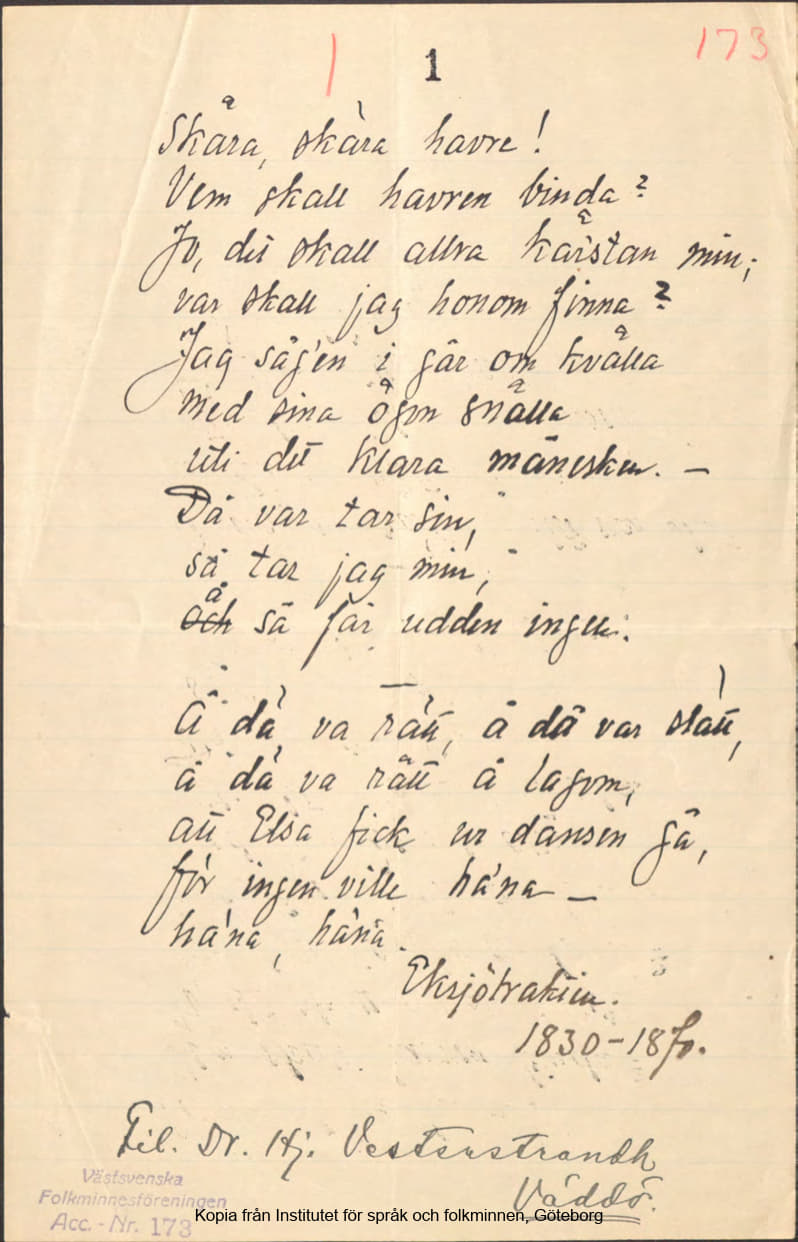 1 173
Skära, skära havre!
Vem skall havren binda?
Jo, det skall allra kärstan min;
var skall jag honom finna?
Jag såg'en i går om kvälla
med sina ögon snälla
uti det klara månesken. —
Då var tar sin,
så tar jag min,
och å så får udden ingen.
—
Å dä va rätt, å dä var slätt,
å dä va rätt å lagom,
att Elsa fick ur dansen gå,
för ingen ville ha'na —
ha'na, ha'na.
Eksjötrakten.
1830-1870.
Fil. Dr. Hj. Vesterstrandh
Väddö.
Västsvenska
Folkminnesföreningen
Acc.-Nr. 173
Kopia från Institutet för språk och folkminnen, Göteborg